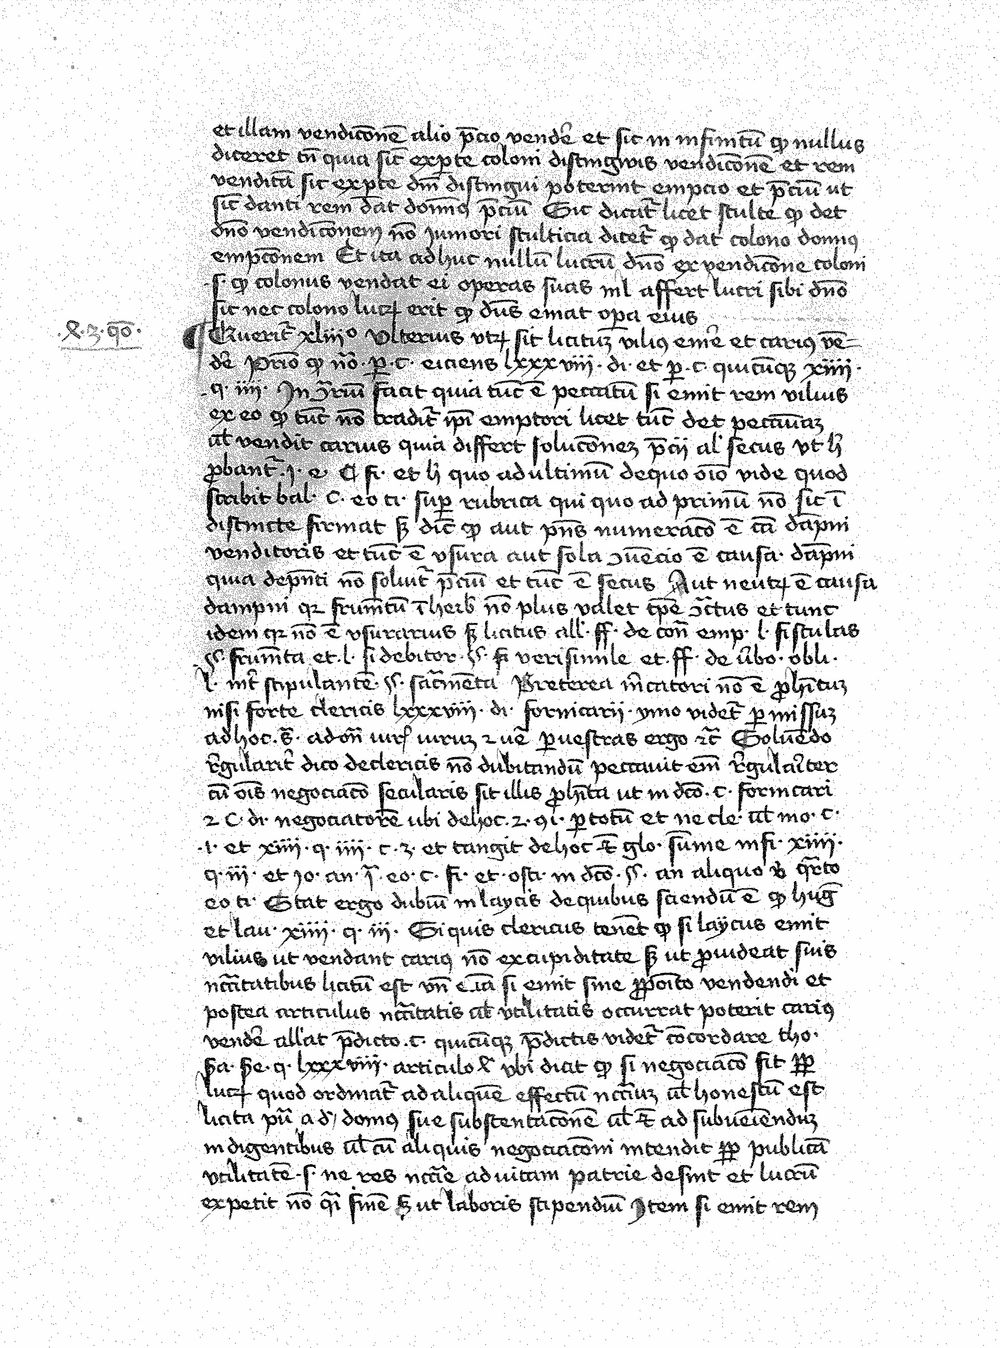 et illam vendicōnē alio p̄cio vendēr et sic in infinitū qꝫ nullus
diceret tn̄ quia sic̄ ex parte coloni distingwis vendicōnē et rem
venditā sic ex parte dn̄i distingui poterint empcio et p̄ciū ut
sic̄ danti rem dat domn̄ꝰ p̄ciū Sic dicat̄ licet stulte qꝫ det
dn̄o vendicōnem nō minori stulticia dicet̄ qꝫ dat colono domnꝰ
empcōnem Et ita adhuc nullū lucrū dn̄o ex vendicōne coloni
.s. qꝫ colonus vendat ei operas suas nl̄ affert lucri sibi dn̄o
sic nec colono lucrꝝ erit qꝫ dn̄s emat opa eius
.x. 3. qō.
¶ Querit̄ xliiiᵒ vlterius utrꝝ sit licituꝫ vilius emēr et carius vē=
dēr Primo qꝫ nō. p. c. eiciens lxxxviii. di. et p. c. quicūqꝫ xiiii.
q. iiii. In 9̄riū facit quia tūc ē peccatū si emit rem vilius
ex eo qꝫ tūc nō tradit̄ ip̄i emptori licet tūc det pecuniaꝫ
al̄ vendit carius quia differt solucōneꝫ p̄cii al̄ secus vt h̄
ꝓbant̄ .i. e. ¶ fi. et h̄ quo ad ultimū de quo oīo vide quod
scribit bal. C. eo ti. sup rubrica qui quo ad primū nō sic ī
distincte firmat sꝫ dic̄ qꝫ aut p̄ns numeracō ē cā dāpni
venditoris et tūc ē vsura aut sola 9uēcio ē causa dāpni
quia dep̄nti nō soluit̄ p̄ciū et tūc ē secus Aut neutrꝝ ē causa
dampni qꝛ frumētū ī herb̄ nō plus valet tp̄e 9̄ctus et tunc
idem qꝛ nō ē vsurarius sꝫ licitus all̄. ff. de con̄ emp. l. fistulas
.§. frum̄ta et. l. si debitor. §. si verisimile et. ff. de v̄bo. obli.
l. int̄ stipulantē. §. sac̄menta Preterea m̄catori nō ē ꝓhītuꝫ
nisi forte clericis lxxxviii. di. fornicarii. ymo videt̄ p missuꝫ
ad hoc. §. ad on̄i iur̄ iuruꝫ ⁊ ue p vestras ergo ⁊c̄ Soluēdo
r̄gularit̄ dico de clericis nō dubitandū peccauit em̄ r̄gulariter
cū ōis negociacō secularis sit illis ꝓhīta ut in dc̄o. c. fornicari
⁊ c. di. negociatorē ubi de hoc. 2. 9i. p totū et ne cle. ul̄ mo. c.
.i. et xiiii. q. iiii. c. 3. et tangit de hoc et̄ glo. sum̄e in fi. xiiii.
q. iii. et Jo. an. i. eo. c. fi. et. osti. in dc̄o. §. an aliquo v̄ q̄rto
eo ti. Stat ergo dubiū in laycis de quibus sciendū ē qꝫ huḡ
et lau. xiiii. q. iii. Si quis clericus tenēt qꝫ si laẏcus emit
vilius ut vendant cariꝰ nō ex cupiditate sꝫ ut ꝓuideat suis
nc̄citatibus licitū est vn̄ eciā si emit sine ꝓpōito vendendi et
postea articulus nc̄citatis al̄ vtilitatis occurrat poterit cariꝰ
vendēr allat p̄dicto. c. quicūqꝫ p̄dictis videt̄ cōcordare tho.
s̄a. s̄e. q. lxxviii. articulo x̄ vbi dicit qꝫ si negociacō sit ꝓp̄
lucrꝝ quod ordinat̄ ad aliquē effectū nc̄iuꝫ ul̄ honestū est
licita pū ad domꝰ sue substentacōnē ul̄ et̄ ad subueiēnduꝫ
indigentibus ul̄ cū aliquis negociacōni intendit ꝓp̄ publicā
vtilitatē. s. ne res nc̄cie ad vitam patrie desint et lucrū
expetit nō q̄i finē sꝫ ut laboris stipendiū Item si emit rem